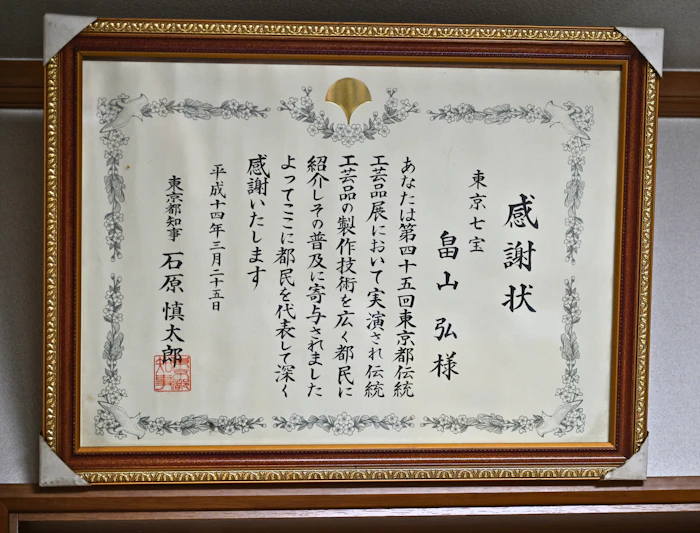 感謝状
東京七宝
畠山 弘様
あなたは第四十五回東京都伝統
工芸品展において実演され伝統
工芸品の製作技術を広く都民に
紹介しその普及に寄与されました
よってここに都民を代表して深く
感謝いたします
平成十四年三月二十五日
東京都知事 石原 慎太郎